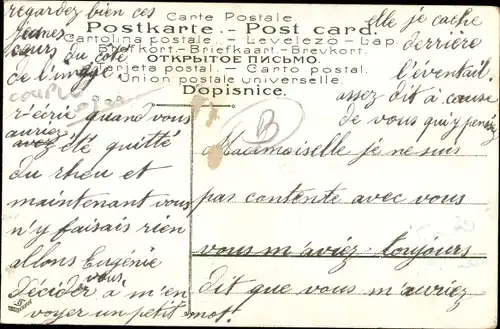 regardez bien ces
jeunes
cœurs du côté
de l'image
Carte Postale
Postkarte.- Post card.
Cartolina postale.- Levelező-Lap.
Brefkort.- Briefkaart.- Brevkort.
ОТКРЫТОЕ ПИСЬМО.
Tarjeta postal. - Carto postal.
Union postale universelle.
Dopisnice.
elle je cache
derrière
l'éventail,
assez dit à cause
de vous qui y
COUPLE
B
Mademoiselle je ne suis
pas contente avec vous
vous m'aviez toujours
dit que vous m'auriez
r'écrié quand vous
auriez
avez été quitté
du rheu et
maintenant vous
n'y faisais rien
allons Eugénie
vous
décider à m'en
voyer un petit mot.